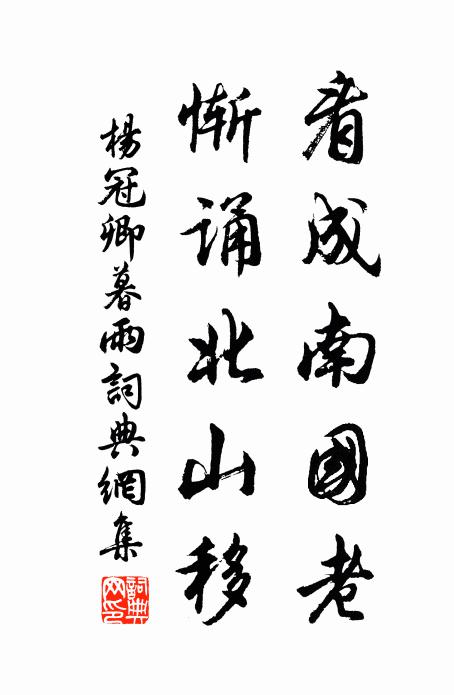 看成南國老
慚誦北山移
楊冠卿暮雨詞典網集
詞典网印